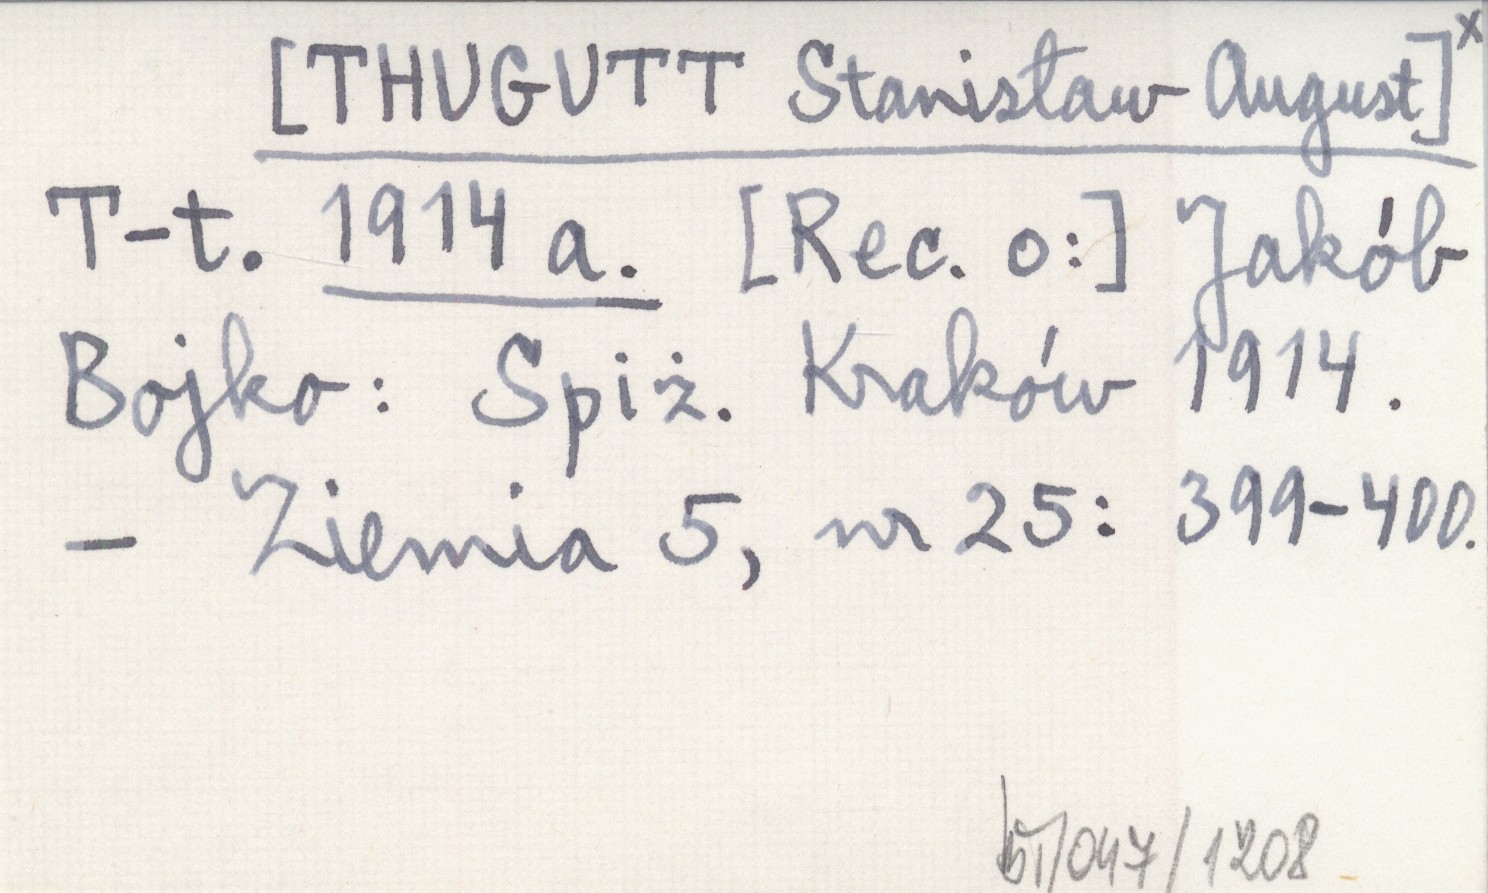 [THUGUTT Stanisław August]x
T-t. 1914 a. [Rec. o:] Jakób
Bojko: Spiż. Kraków 1914.
— Ziemia 5, nr 25: 399-400.
/047/1208